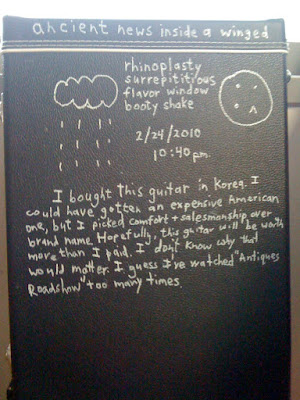 ancient news inside a winged
rhinoplasty
surrepititious
flavor window
booty shake
2/24/2010
10:40 pm.
I bought this guitar in Korea. I
could have gotten an expensive American
one, but I picked comfort + salesmanship over
brand name. Hopefully, this guitar will be worth
more than I paid. I don't know why that
would matter. I guess I've watched "Antiques
Roadshow" too many times.